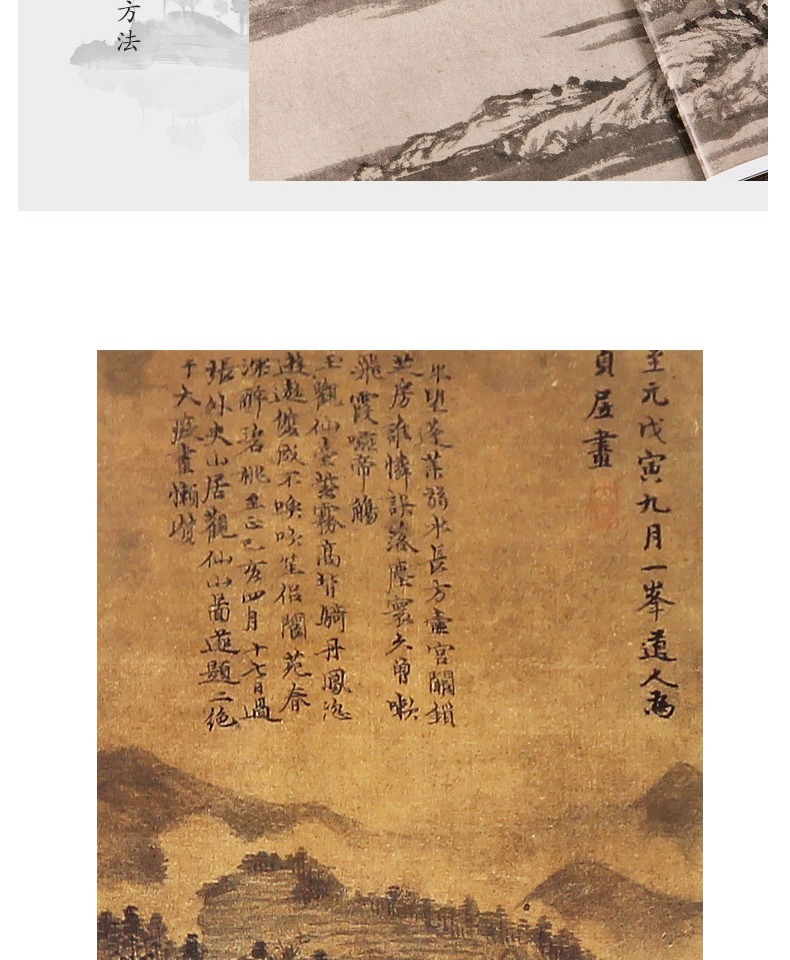 方法
至元戊寅九月一峯道人為
貞居畫
東望蓬萊弱水長方壺宮闕鎖
芝房誰憐誤落塵寰久曾嗽
飛霞噀帝觴
玉觀仙臺紫霧高背騎丹鳳恣
遊遨成不喚吹笙侶閬苑春
深醉碧桃至正己亥四月十七日過
張外史山居觀仙山啚遂題二絶
于大癡畫懶瓚